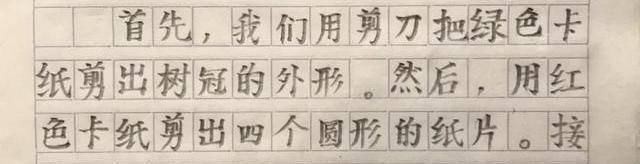 首先，我们用剪刀把绿色卡
纸剪出树冠的外形。然后，用红
色卡纸剪出四个圆形的纸片。接